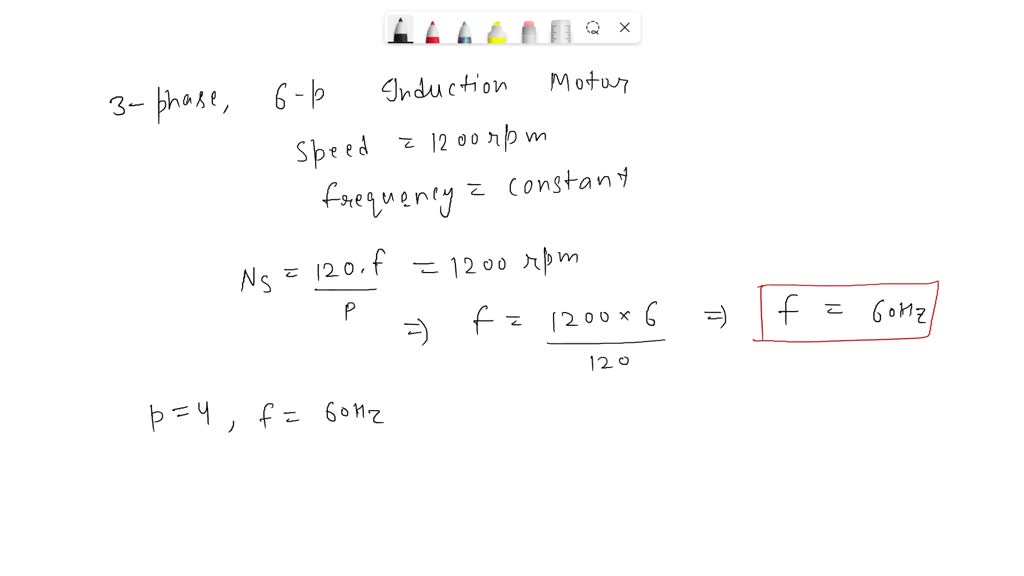 3- phase, 6-p Induction Motor
Speed = 1200 rpm
frequency = constant
Ns = 120.f / P = 1200 rpm
=> f = 1200 × 6 / 120 => f = 60Hz
p = 4, f = 60Hz